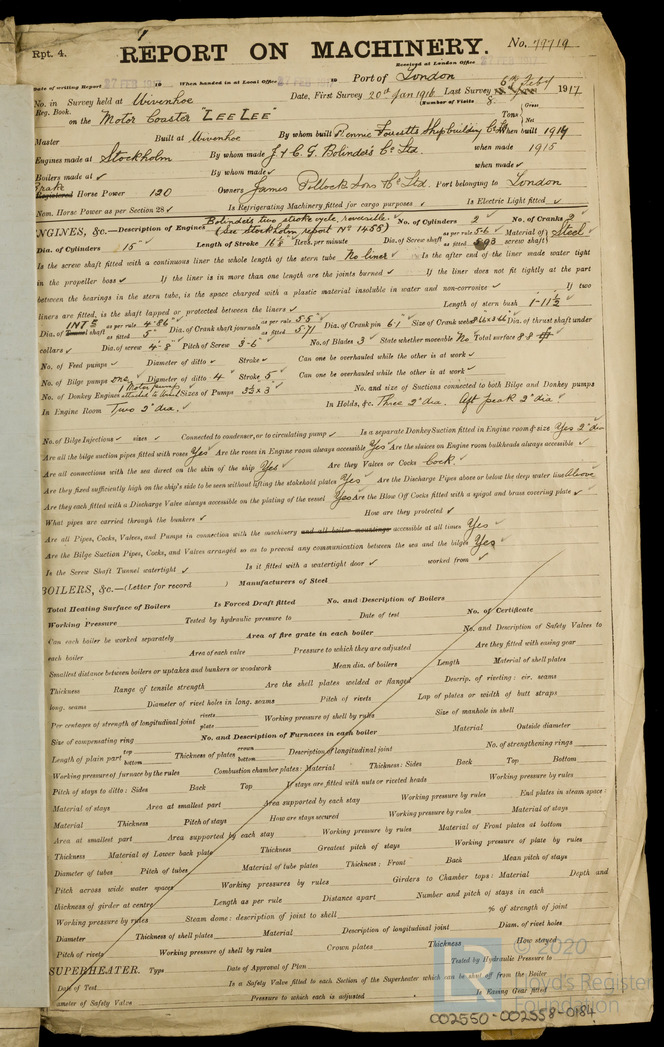 Rpt. 4.
REPORT ON MACHINERY.
No. 77719
Received at London Office
Date of writing Report 19 When handed in at Local Office 19 Port of London
No. in Survey held at Wivenhoe Date, First Survey 20th Jan 1916 Last Survey 6th Feby 1917
Reg. Book. (Number of Visits 8.
on the "Motor Coaster "LEE LEE" Tons { Gross Net
Master Built at Wivenhoe By whom built Rennie Forrestts Shipbuilding Co When built 1917
Engines made at Stockholm By whom made J & C. G. Bolinder's Co Ltd. when made 1915
Boilers made at ✓ By whom made ✓ when made ✓
Brake Registered Horse Power 120 Owners James Pollock Sons & Co Ltd. Port belonging to London
Nom. Horse Power as per Section 28 ✓ Is Refrigerating Machinery fitted for cargo purposes ✓ Is Electric Light fitted ✓
ENGINES, &c.—Description of Engines Bolinders two stroke cycle, reversible. (See Stockholm report No 1455) No. of Cylinders 2 No. of Cranks 2
Dia. of Cylinders 15" Length of Stroke 16⅛" Revs. per minute Dia. of Screw shaft as per rule 5.6 as fitted 5.93 Material of screw shaft } Steel
Is the screw shaft fitted with a continuous liner the whole length of the stern tube No liner ✓ Is the after end of the liner made water tight
in the propeller boss ✓ If the liner is in more than one length are the joints burned ✓ If the liner does not fit tightly at the part
between the bearings in the stern tube, is the space charged with a plastic material insoluble in water and non-corrosive ✓ If two
liners are fitted, is the shaft lapped or protected between the liners ✓ Length of stern bush 1-11½
Dia. of INTE Tunnel shaft as per rule 4.86 as fitted 5" Dia. of Crank shaft journals as per rule 5.5 as fitted 5.71 Dia. of Crank pin 6.1 Size of Crank webs Dia. of thrust shaft under
collars ✓ Dia. of screw 4-8 Pitch of Screw 3-6 No. of Blades 3 State whether moveable No Total surface 8.8 ft
No. of Feed pumps ✓ Diameter of ditto ✓ Stroke ✓ Can one be overhauled while the other is at work ✓
No. of Bilge pumps one Diameter of ditto 4 Stroke 5 Can one be overhauled while the other is at work ✓
No. of Donkey Engines 1 Motor pump Sizes of Pumps 3½ x 3 No. and size of Suctions connected to both Bilge and Donkey pumps
In Engine Room Two 2" dia. In Holds, &c. Three 2" dia. Aft peak 2" dia
No. of Bilge Injections ✓ sizes ✓ Connected to condenser, or to circulating pump ✓ Is a separate Donkey Suction fitted in Engine room & size Yes 2" dia
Are all the bilge suction pipes fitted with roses Yes Are the roses in Engine room always accessible Yes Are the sluices on Engine room bulkheads always accessible ✓
Are all connections with the sea direct on the skin of the ship Yes Are they Valves or Cocks Cock
Are they fixed sufficiently high on the ship's side to be seen without lifting the stokehold plates Yes Are the Discharge Pipes above or below the deep water line Above
Are they each fitted with a Discharge Valve always accessible on the plating of the vessel Yes Are the Blow Off Cocks fitted with a spigot and brass covering plate ✓
What pipes are carried through the bunkers ✓ How are they protected ✓
Are all Pipes, Cocks, Valves, and Pumps in connection with the machinery and all boiler mountings accessible at all times Yes
Are the Bilge Suction Pipes, Cocks, and Valves arranged so as to prevent any communication between the sea and the bilges Yes
Is the Screw Shaft Tunnel watertight ✓ Is it fitted with a watertight door ✓ worked from ✓
BOILERS, &c.—(Letter for record ) Manufacturers of Steel
Total Heating Surface of Boilers Is Forced Draft fitted No. and Description of Boilers
Working Pressure Tested by hydraulic pressure to Date of test No. of Certificate
Can each boiler be worked separately Area of fire grate in each boiler No. and Description of Safety Valves to
each boiler Area of each valve Pressure to which they are adjusted Are they fitted with easing gear
Smallest distance between boilers or uptakes and bunkers or woodwork Mean dia. of boilers Length Material of shell plates
Thickness Range of tensile strength Are the shell plates welded or flanged Descrip. of riveting : cir. seams
long. seams Diameter of rivet holes in long. seams Pitch of rivets Lap of plates or width of butt straps
Per centages of strength of longitudinal joint rivets plate Working pressure of shell by rules Size of manhole in shell
Size of compensating ring No. and Description of Furnaces in each boiler Material Outside diameter
Length of plain part top bottom Thickness of plates crown bottom Description of longitudinal joint No. of strengthening rings
Working pressure of furnace by the rules Combustion chamber plates : Material Thickness : Sides Back Top Bottom
Pitch of stays to ditto : Sides Back Top If stays are fitted with nuts or riveted heads Working pressure by rules
Material of stays Area at smallest part Area supported by each stay Working pressure by rules End plates in steam space :
Material Thickness Pitch of stays How are stays secured Working pressure by rules Material of stays
Area at smallest part Area supported by each stay Working pressure by rules Material of Front plates at bottom
Thickness Material of Lower back plate Thickness Greatest pitch of stays Working pressure of plate by rules
Diameter of tubes Pitch of tubes Material of tube plates Thickness : Front Back Mean pitch of stays
Pitch across wide water spaces Working pressures by rules Girders to Chamber tops : Material Depth and
thickness of girder at centre Length as per rule Distance apart Number and pitch of stays in each
Working pressure by rules Steam dome: description of joint to shell % of strength of joint
Diameter Thickness of shell plates Material Description of longitudinal joint Diam. of rivet holes
Pitch of rivets Working pressure of shell by rules Crown plates Thickness How stayed
SUPERHEATER. Type Date of Approval of Plan Tested by Hydraulic Pressure to
Date of Test Is a Safety Valve fitted to each Section of the Superheater which can be shut off from the Boiler
Diameter of Safety Valve Pressure to which each is adjusted Is Easing Gear fitted
LR © 2020 Lloyd's Register Foundation
002550-002558-0184